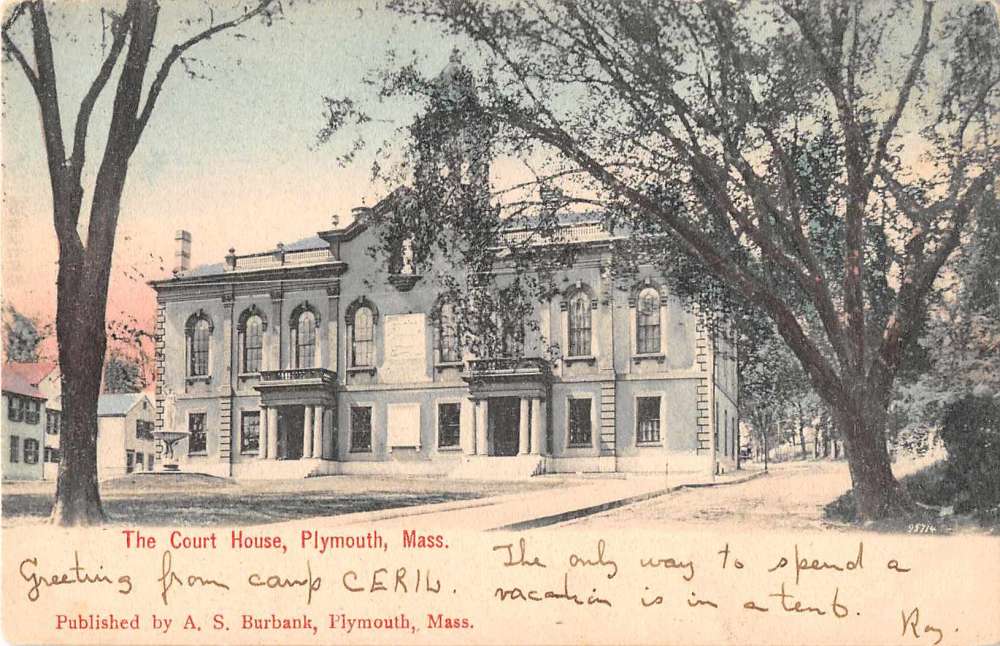 95714
The Court House, Plymouth, Mass.
Greeting from camp CERIL.
The only way to spend a
vacation is in a tent.
Roy.
Published by A. S. Burbank, Plymouth, Mass.